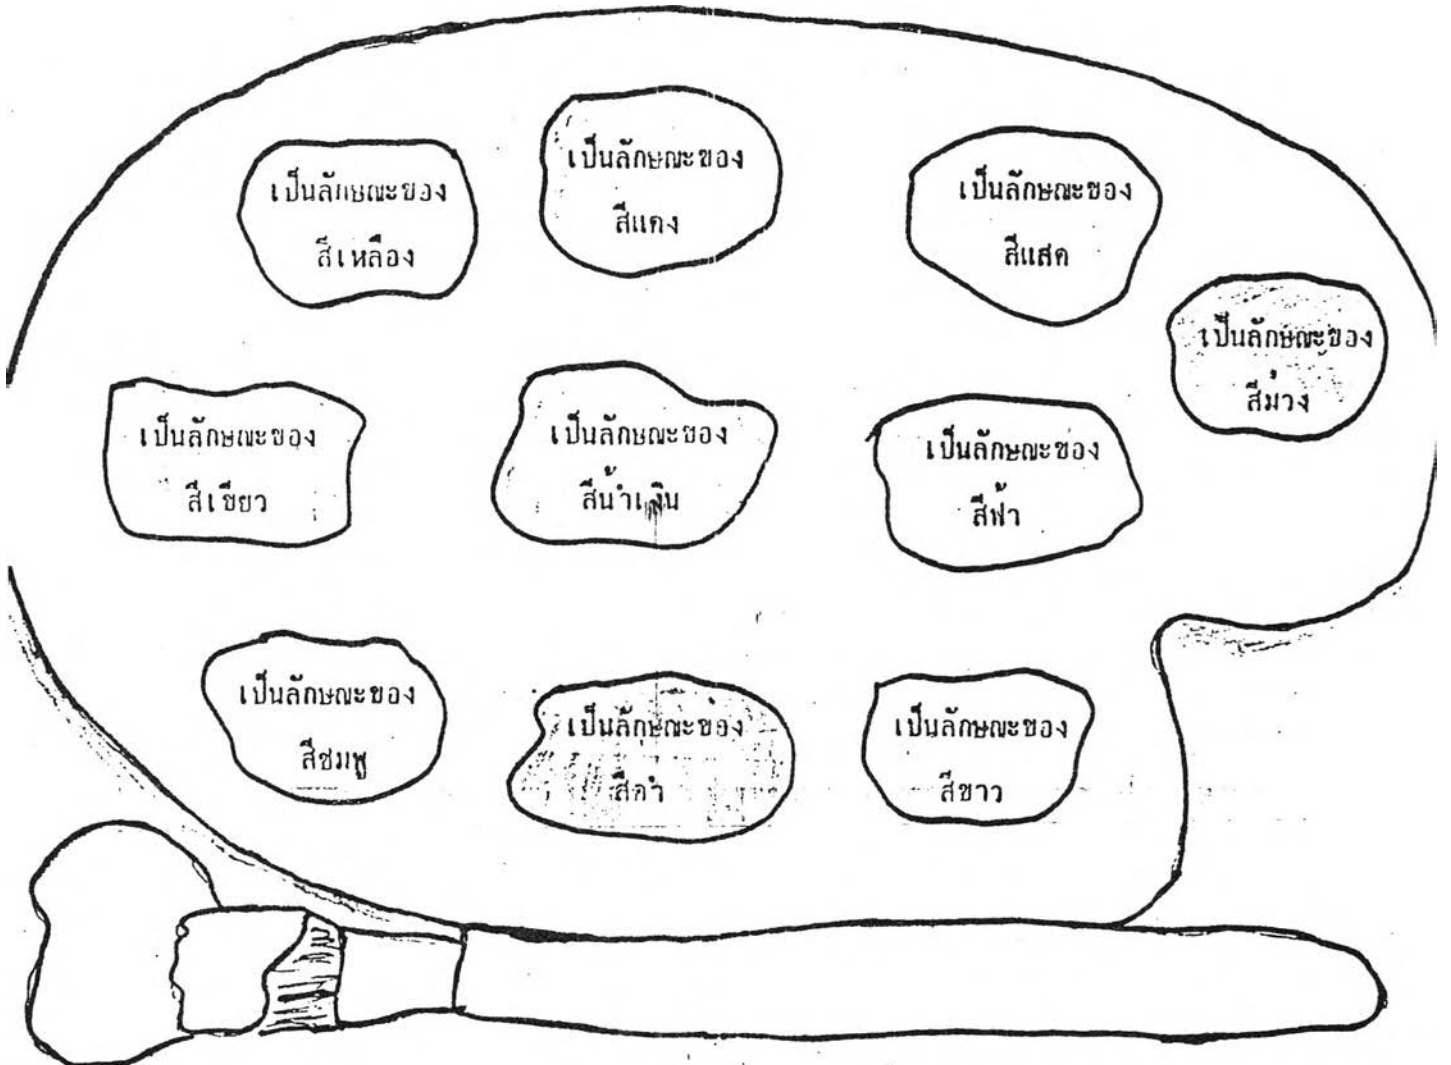 เป็นลักษณะของ
สีเหลือง
เป็นลักษณะของ
สีแดง
เป็นลักษณะของ
สีแสด
เป็นลักษณะของ
สีม่วง
เป็นลักษณะของ
สีเขียว
เป็นลักษณะของ
สีน้ำเงิน
เป็นลักษณะของ
สีฟ้า
เป็นลักษณะของ
สีชมพู
เป็นลักษณะของ
สีดำ
เป็นลักษณะของ
สีขาว